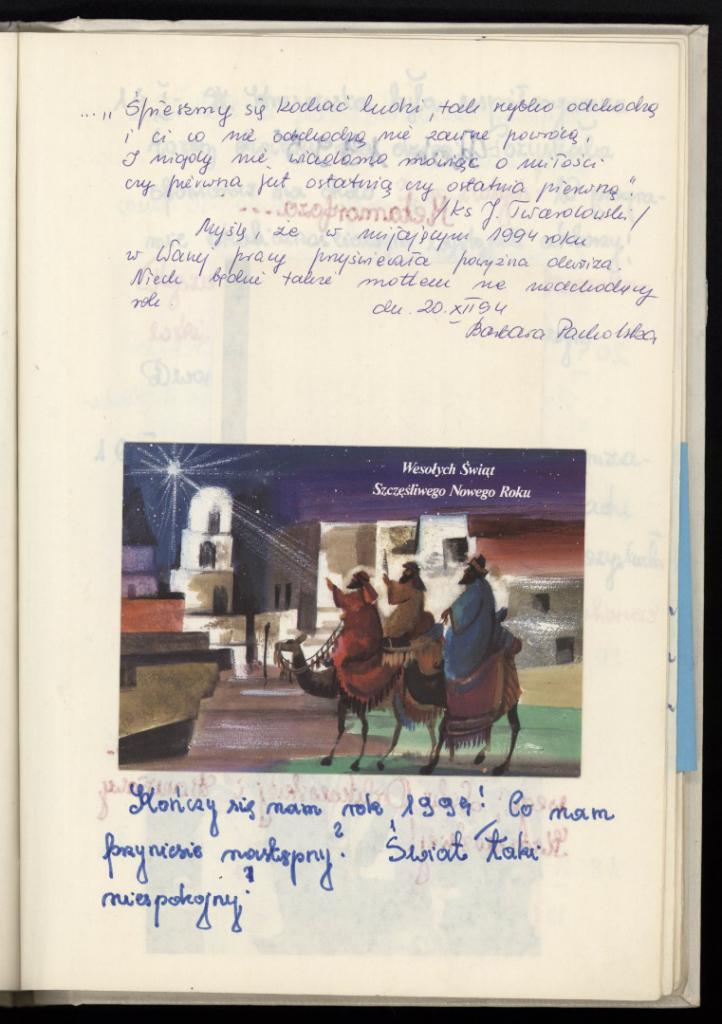 ...„ Śpieszmy się kochać ludzi, tak szybko odchodzą
i ci co nie odchodzą nie zawsze powrócą,
I nigdy nie wiadomo mówiąc o miłości
czy pierwsza jest ostatnią czy ostatnia pierwszą."
/ks J. Twardowski/
Myślę, że w mijającym 1994 roku
w Waszej pracy przyświecała powyższa dewiza.
Niech będzie także mottem na nadchodzący
rok.
dn. 20.XII 94
Barbara
Wesołych Świąt
Szczęśliwego Nowego Roku
Kończy się nam rok 1994! Co nam
przyniesie następny? Świat taki
niespokojny!